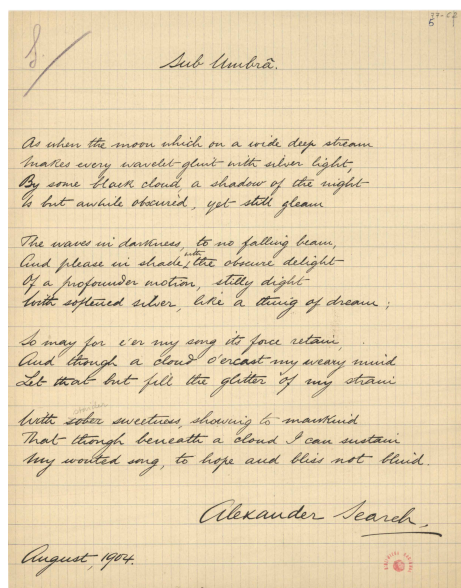 5
Sub Umbrâ.
As when the moon which on a wide deep stream
Makes every wavelet glint with silver light,
By some black cloud, a shadow of the night
Is but awhile obscured, yet still gleam
The waves in darkness, to no falling beam,
And please in shade, with the obscure delight
Of a profounder motion, stilly dight
With softened silver, like a thing of dream;
So may for e'er my song its force retain,
And though a cloud o'ercast my weary mind
Let that but fill the glitter of my strain
With sober sweetness, showing to mankind
That though beneath a cloud I can sustain
My wonted song, to hope and bliss not blind.
Alexander Search.
August, 1904.